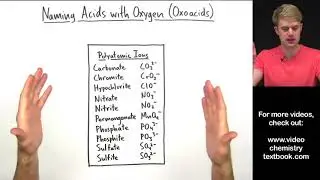 Naming Acids with Oxygen (Oxoacids)
Polyatomic Ions
Carbonate CO₃²⁻
Chromate CrO₄²⁻
Hypochlorite ClO⁻
Nitrate NO₃⁻
Nitrite NO₂⁻
Permanganate MnO₄⁻
Phosphate PO₄³⁻
Phosphite PO₃³⁻
Sulfate SO₄²⁻
Sulfite SO₃²⁻
For more videos,
check out:
www.video
chemistry
textbook.com